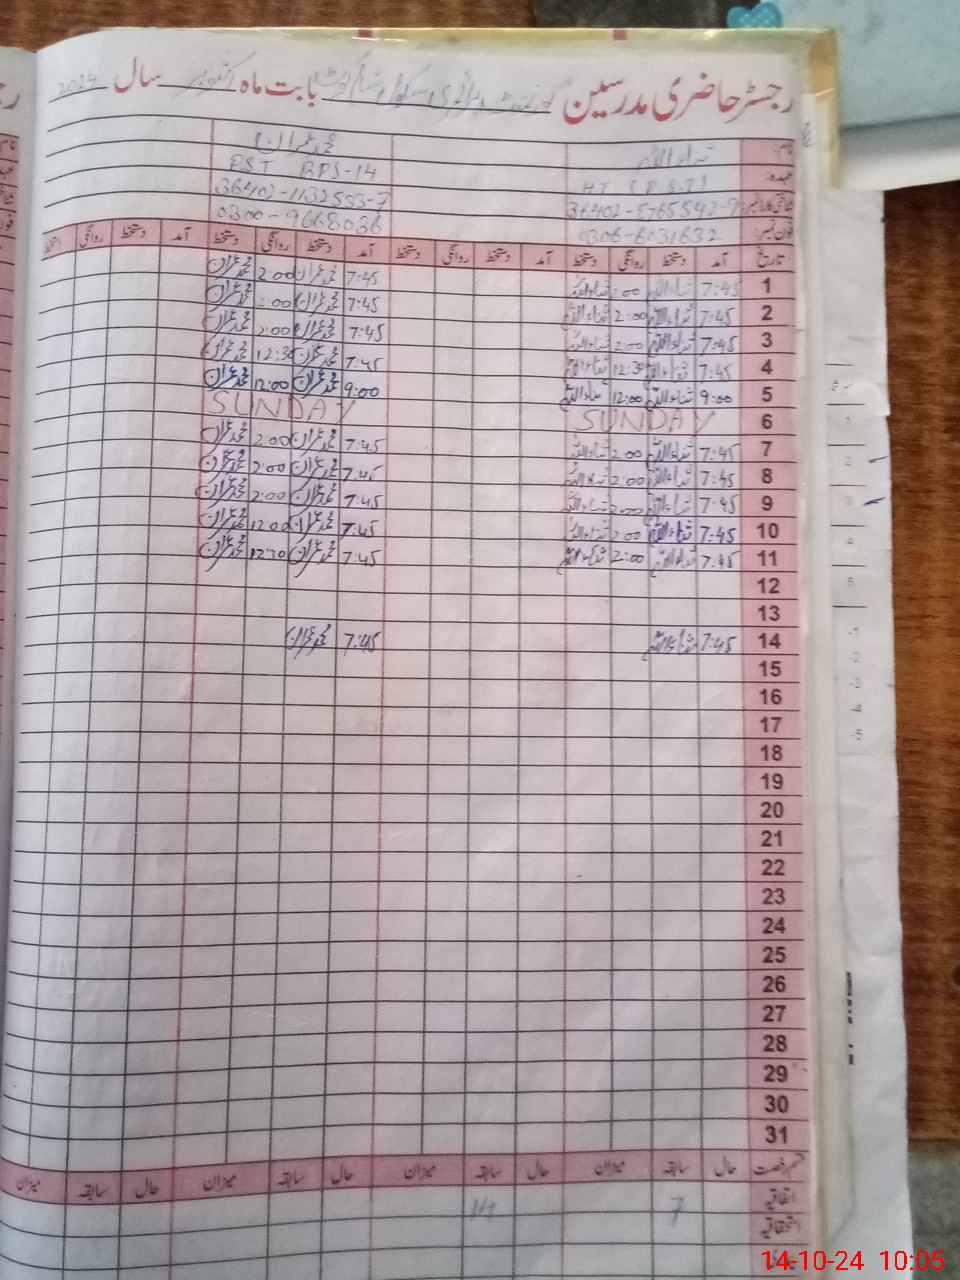 رجسٹر حاضری مدرسین گورنمنٹ پرائمری سکول بابت ماہ اکتوبر سال 2024
نام: ثناء اللہ محمد عمران
عہدہ: HT (P.S.T) PST BPS-14
شناختی کارڈ نمبر: 36402-5765542-9 36402-1132553-7
فون نمبر: 0306-6031632 0300-9668036
تاریخ آمد دستخط روانگی دستخط آمد دستخط روانگی دستخط آمد دستخط روانگی دستخط آمد دستخط روانگی دستخط
1 7:45 ثناء اللہ 2:00 ثناء اللہ 7:45 محمد عمران 2:00 محمد عمران
2 7:45 ثناء اللہ 2:00 ثناء اللہ 7:45 محمد عمران 2:00 محمد عمران
3 7:45 ثناء اللہ 2:00 ثناء اللہ 7:45 محمد عمران 2:00 محمد عمران
4 7:45 ثناء اللہ 12:30 ثناء اللہ 7:45 محمد عمران 12:30 محمد عمران
5 9:00 ثناء اللہ 12:00 ثناء اللہ 9:00 محمد عمران 12:00 محمد عمران
6 SUNDAY SUNDAY
7 7:45 ثناء اللہ 2:00 ثناء اللہ 7:45 محمد عمران 2:00 محمد عمران
8 7:45 ثناء اللہ 2:00 ثناء اللہ 7:45 محمد عمران 2:00 محمد عمران
9 7:45 ثناء اللہ 2:00 ثناء اللہ 7:45 محمد عمران 2:00 محمد عمران
10 7:45 ثناء اللہ 2:00 ثناء اللہ 7:45 محمد عمران 12:00 محمد عمران
11 7:45 ثناء اللہ 2:00 ثناء اللہ 7:45 محمد عمران 12:30 محمد عمران
12
13
14 7:45 ثناء اللہ 7:45 محمد عمران
15
16
17
18
19
20
21
22
23
24
25
26
27
28
29
30
31
قسم رخصت حال سابقہ میزان حال سابقہ میزان حال سابقہ میزان حال سابقہ میزان
اتفاقیہ
استحقاقیہ 7 14
14-10-24 10:05